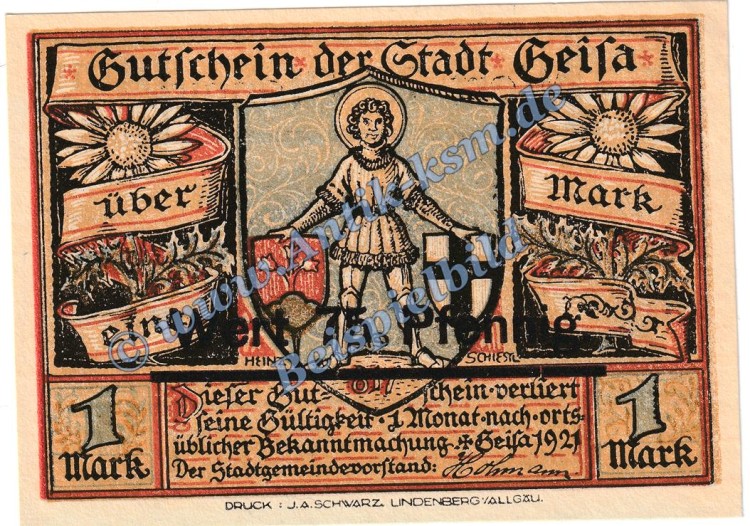 Gutschein der Stadt Geisa
über Mark
eine
Wert 75 Pfennig
HEINZ SCHIESTL
817
1 Mark
Dieser Gut- schein verliert
seine Gültigkeit 1 Monat nach orts-
üblicher Bekanntmachung Geisa 1921
Der Stadtgemeindevorstand:
1 Mark
DRUCK : J.A. SCHWARZ, LINDENBERG/ALLGÄU.
© www.Antik-ksm.de
Beispielbild